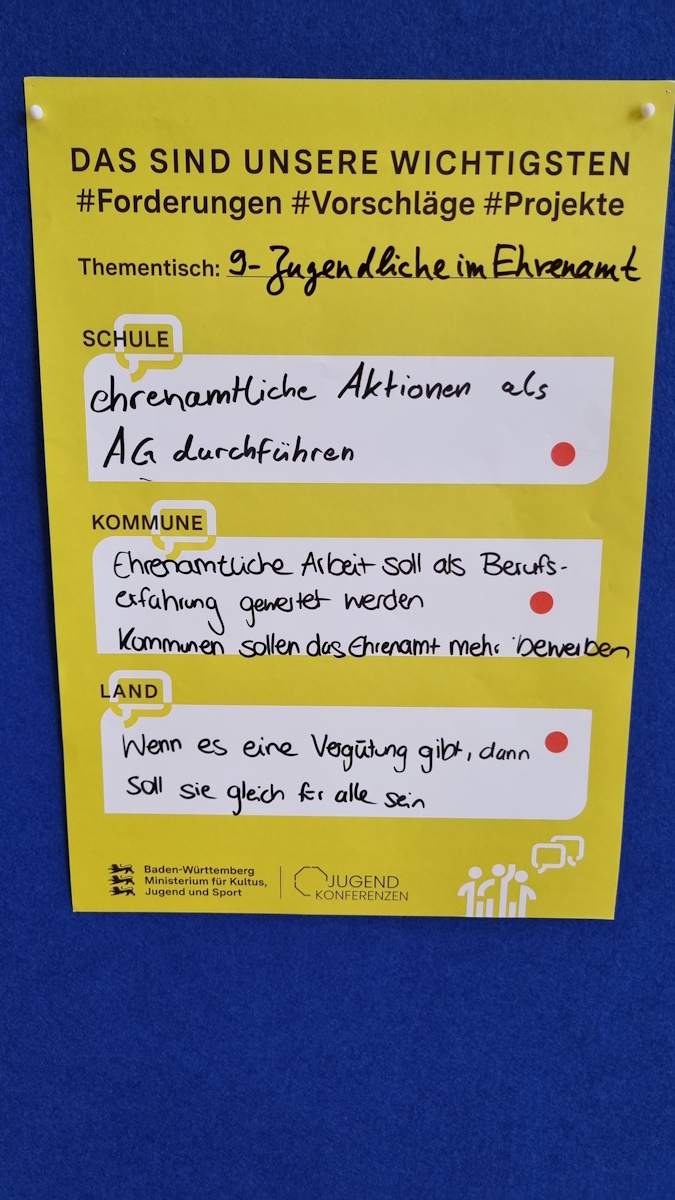 DAS SIND UNSERE WICHTIGSTEN
#Forderungen #Vorschläge #Projekte
Thementisch: 9- Jugendliche im Ehrenamt
SCHULE
ehrenamtliche Aktionen als
AG durchführen
KOMMUNE
Ehrenamtliche Arbeit soll als Berufs-
erfahrung gewertet werden
Kommunen sollen das Ehrenamt mehr bewerben
LAND
Wenn es eine Vergütung gibt, dann
soll sie gleich für alle sein
Baden-Württemberg
Ministerium für Kultus,
Jugend und Sport
JUGEND
KONFERENZEN